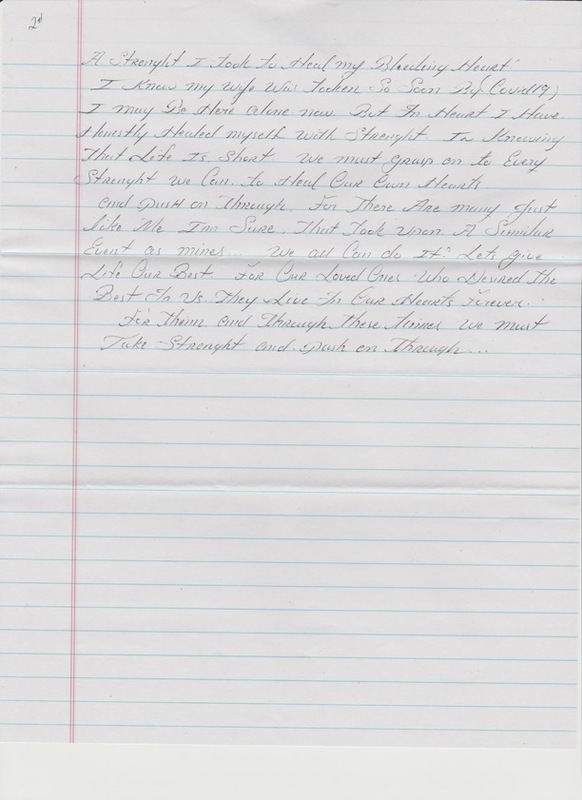 2nd
A Strenght I took to Heal my Bleeding Heart"
I Know my Wife Was Tocken So Soon By (Covid19)
I may Be Here alone now. But In Heart I Have
Honestly Healed myself With Strenght In Knowing
That Life Is Short. We must grasp on to Every
Strenght We Can. to Heal Our Own Hearts
and push on Through. For There Are many Just
like Me I'm Sure. That Took Upon A Similar
Event as mines... We all Can do It" Lets give
Life Our Best. For Our Loved Ones Who Desired the
Best In Us. They Live In Our Hearts Forever.
For Them and Through these times We must
Take Strenght and push on Through...